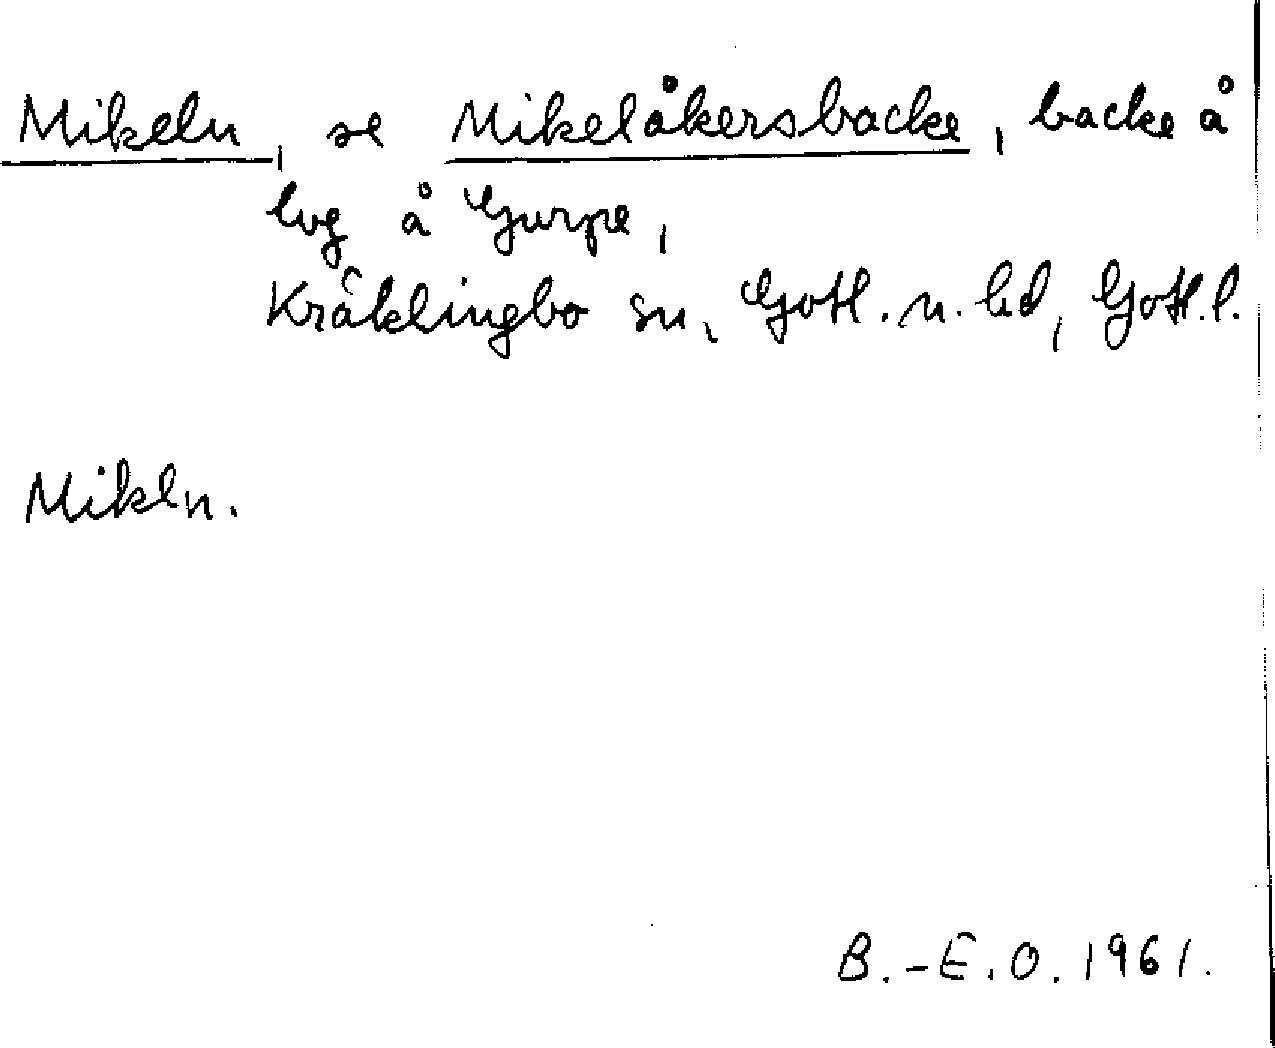 Mikeln, se Mikelåkersbacke, backe å
lvg å Gurpe,
Kräklingbo sn, Gotl. n. hd, Gotl. l.
Mikeln.
B.-E.O. 1961.